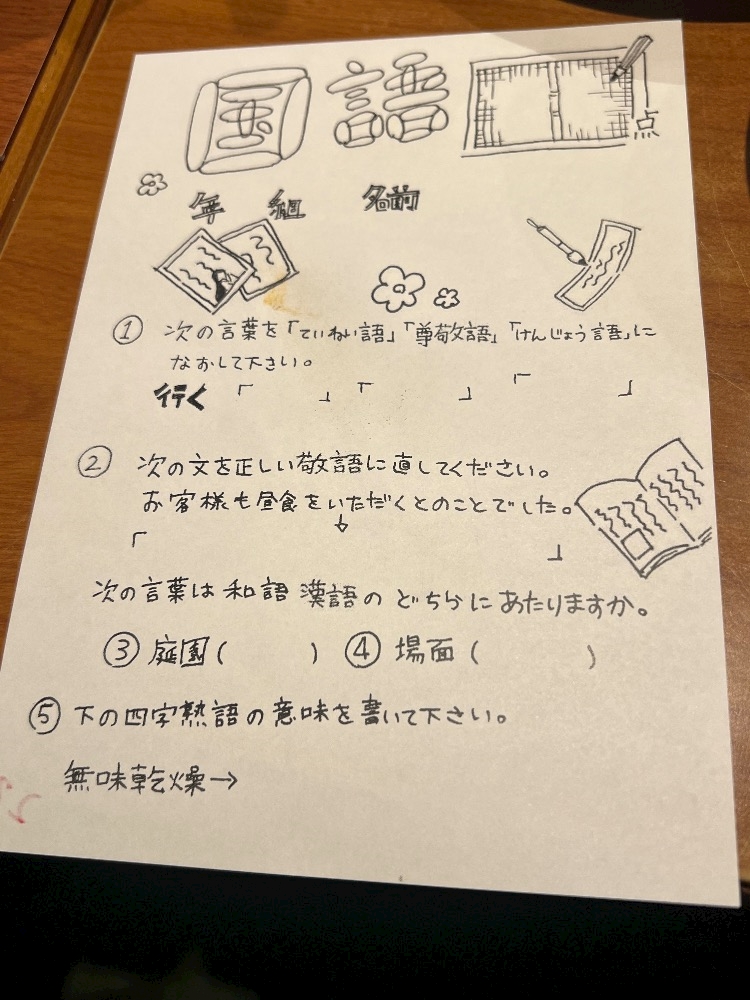 国語
点
年 組 名前
① 次の言葉を「ていねい語」「尊敬語」「けんじょう語」に
なおして下さい。
行く 「 」 「 」 「 」
② 次の文を正しい敬語に直してください。
お客様も昼食をいただくとのことでした。
↓
「 」
次の言葉は和語漢語のどちらにあたりますか。
③ 庭園( ) ④ 場面( )
⑤ 下の四字熟語の意味を書いて下さい。
無味乾燥→